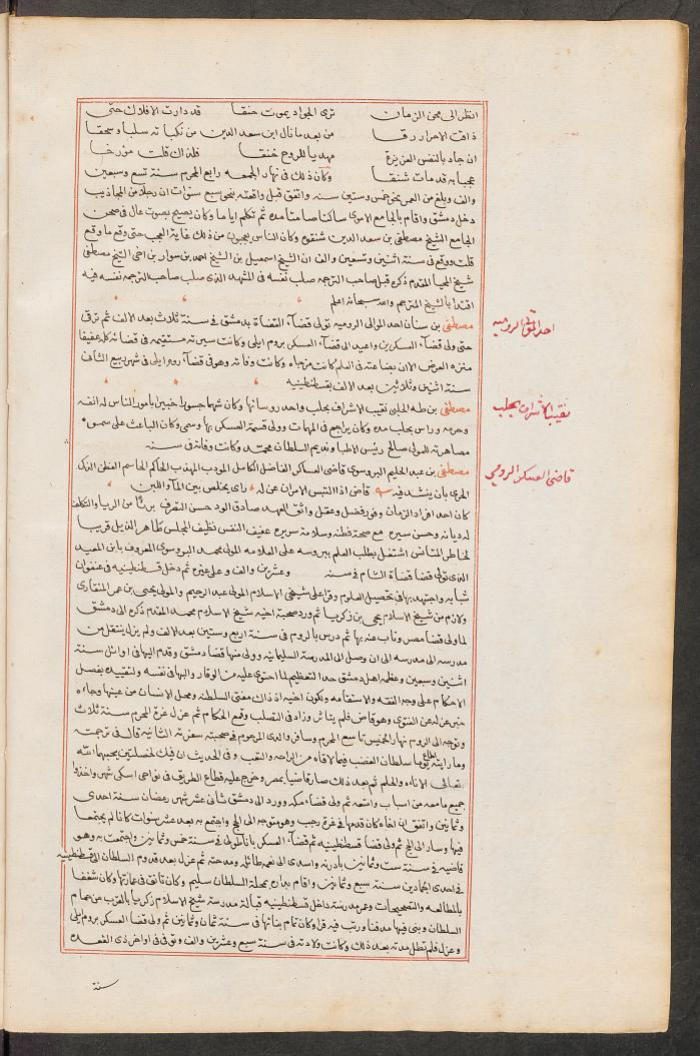 انظر الى محن الزمان ترى الجواد يموت حنقا قد دارت الافلاك حتى
ذاقت الاحرار رقا من بعد ما نال ابن سعد الدين من نكباته سلبا وسحقا
ان جاد بالنفس العزيزة مهديا للروح خنقا فلذاك قلت مؤرخا
عجبا به قد مات شنقا وكان ذلك فى نهار الجمعه رابع المحرم سنة تسع وسبعين
والف وبلغ من العمر نحو خمس وستين سنه واتفق قبل واقعته بنحو سبع سنوات ان رجلا من المجاذيب
دخل دمشق واقام بالجامع الاموى ساكتا صامتا مده ثم تكلم اياما وكان يصيح بصوت عال فى صحن
الجامع الشيخ مصطفى بن سعد الدين شنقوه وكان الناس يعجبون من ذلك غاية العجب حتى وقع ما وقع
قلت ووقع فى سنة اثنين وتسعين والف ان الشيخ اسمعيل بن الشيخ احمد بن سوار بن اخى الشيخ مصطفى
شيخ المحيا المقدم ذكره قبل صاحب الترجمه صلب نفسه فى المشهد الذى صلب صاحب الترجمه نفسه فيه
اقتدا بالشيخ المترجم والله سبحانه اعلم
مصطفى بن سنان احد الموالى الروميه تولى قضآء القضاة بدمشق فى سنة ثلاث بعد الالف ثم ترقى
حتى ولى قضآء العسكرين واعيد الى قضآء العسكر بروم ايلى وكانت سيرته مستقيمه فى قضائه كله عفيفا
منزه العرض الا ان بضاعته فى العلم كانت مزجاه وكانت وفاته وهو فى قضآء روم ايلى فى شهر ربيع الثانى
سنة اثنين وثلاثين بعد الالف بقسطنطينيه
مصطفى بن طه الحلبى نقيب الاشراف بحلب واحد روسائها وكان شهما جسورا خبيرا بامور الناس له انفه
وحرمه وراس بحلب مده وكان يراجع فى المهمات وولى قسمة العسكر بها وسمى وكان الباعث على سموه
مصاهرته للمولى صالح رئيس الاطبا ونديم السلطان محمد وكانت وفاته فى سنة
مصطفى بن عبد الحليم البروسوى قاضى العساكر الفاضل الكامل المودب المهذب الحاكم الحاسم الفطن الذكى
الحرى بان ينشد فيه قاض اذا التبس الامران عن له راى يخلص بين المآ واللبن
كان احد افراد الزمان وفور فضل وعقل واثق العهد صادق الود حسن التصرف بريا من الريا والتكلف
له ديانه وحسن سيره مع صحة فطنه وسلامة سريره عفيف النفس نظيف المجلس طاهر الذيل قريبا
لخاطر الناس اشتغل بطلب العلم ببروسه على العلامه المولى محمد البروسوى المعروف بابن المعيد
الذى تولى قضا قضاة الشام فى سنه وعشرين والف وعلى غيره ثم دخل قسطنطينيه فى عنفوان
شبابه واجتهد بها فى تحصيل العلوم وقرا على شيخى الاسلام المولى عبد الرحيم والمولى يحيى بن عمر المنقارى
ولازم من شيخ الاسلام يحيى بن زكريا ثم ورد صحبة اخيه شيخ الاسلام محمد المقدم ذكره الى دمشق
لما ولى قضا مصر وناب عنه بها ثم درس بالروم فى سنة اربع وستين بعد الالف ولم يزل ينتقل من
مدرسه الى مدرسه الى ان وصل الى المدرسة السليمانيه وولى منها قضا دمشق وقدم اليها فى اوائل سنة
اثنين وسبعين وعظمه اهل دمشق حدا لتعظيم لما احتوى عليه من الوقار والبها فى نفسه ولتقييده بفصل
الاحكام على وجه الفقه والاستقامه وبكون اخيه اذ ذاك مفتى السلطنه ومحل الانسان من عينها وجاءه
خبر عزله عن الفتوى وهو قاض فلم يتاثر وزاد فى التصلب وقع الحكام ثم عزل غرة المحرم سنة ثلاث
وتوجه الى الروم نهار الخميس تاسع المحرم وسافر والدى المرحوم فى صحبته سفرته الثانيه قال فى ترجمته
وما رايته يوما اطاع سلطان الغضب فيما لاقاه من الراحه والتعب وفى الحديث ان فيك لخصلتين يحبهما الله
تعالى الاناه والحلم ثم بعد ذلك صار قاضيا بمصر وخرج عليه قطاع الطريق فى نواحى اسكى شهر واخذوا
جميع ما معه من اسباب وامتعه ثم ولى قضاء مكه وورد الى دمشق ثانى عشر شهر رمضان سنة احدى
وثمانين واتفق ان اخاه كان قدمها فى غرة رجب وهو متوجه الى الحج واجتمع به بعد عشر سنوات كانا لم يجتمعا
فيها وسار الى الحج ثم ولى قضا قسطنطينيه ثم قضآء العسكر باناطولى فى سنة خمس وثمانين واجتمعت به وهو
قاضيه فى سنة ست وثمانين بادرنه واسدى الى نعم طائله ومدحته ثم عزل بعد قدوم السلطان الى قسطنطينيه
فى احدى الجمادين سنة سبع وثمانين واقام بداره بمحلة السلطان سليم وكان تانق فى عمارتها وكان شغفا
بالمطالعه والتصحيحات وعمر مدرسة داخل قسطنطينيه قبالة مدرسة شيخ الاسلام زكريا بالقرب من حمام
السلطان وبنى فيها مدفنا ورتب فيه قرا وكان تمام بنائها فى سنة ثمان وثمانين ثم ولى قضا العسكر بروم ايلى
وعزل فلم تطل مدته بعد ذلك وكانت ولادته فى سنة سبع وعشرين والف وتوفى فى اواخر ذى القعده
سنة
احد الموالى الروميه
نقيب الاشراف بحلب
قاضى العسكر الرومى